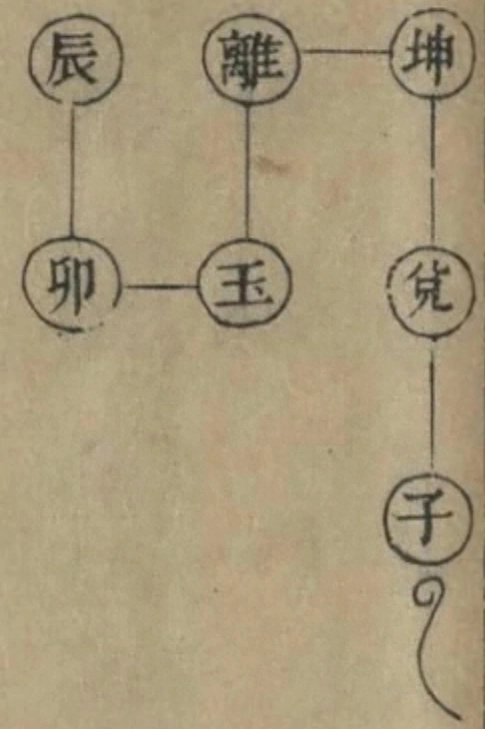 坤
兌
子
離
玉
辰
卯